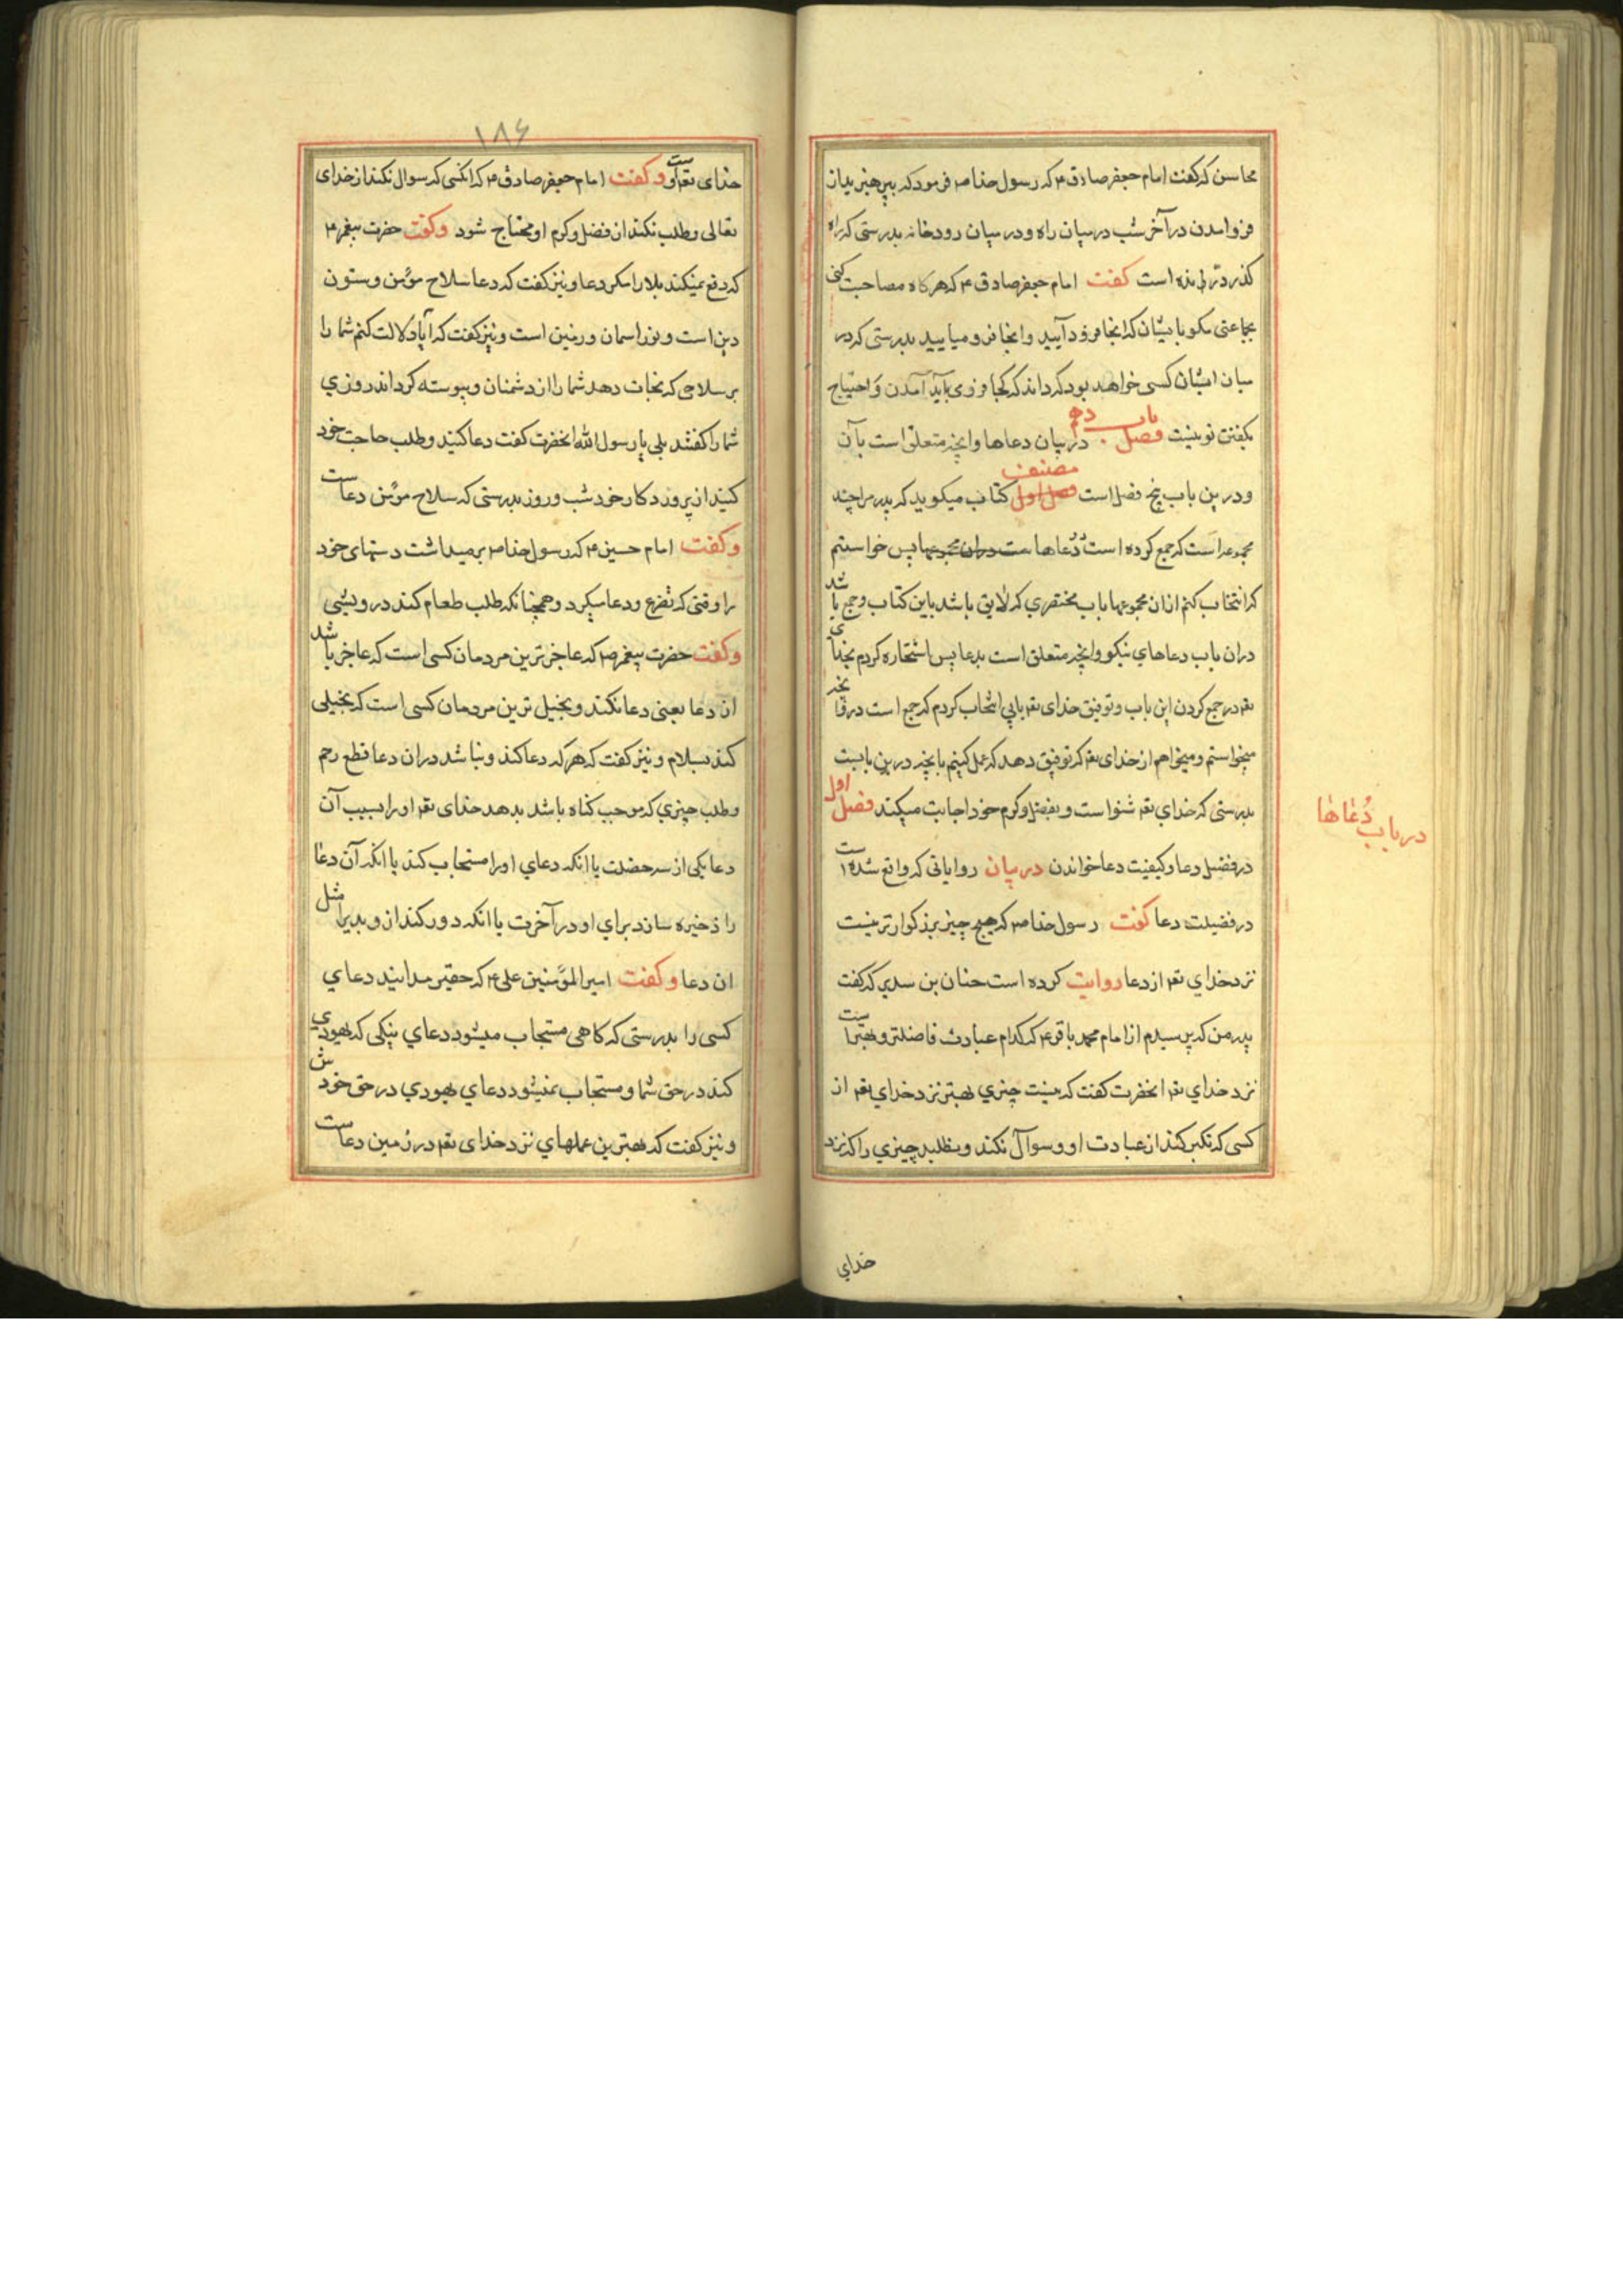 محاسن که گفت امام جعفر صادق ع که رسول خدا ص فرمود که بپرهیزید از
فرو امدن در آخر شب در میان راه و در میان رودخانه بدرستی که راه
گذر درندها است گفت امام جعفر صادق ع که هرگاه مصاحبت کنی
بجماعتی مکو با یشان که اینجا فرود آیید و اینجا فرو میایید بدرستی که در
میان ایشان کسی خواهد بود که داند که کجا فروی باید آمدن و احتیاج
بگفتن تو نیست فصل باب دهم در بیان دعاها و انچه متعلق است بآن
و درین باب پنج فصل است فصل اول مصنف کتاب میکوید که پدر مرا چند
مجموعه است که جمع کرده است دعاها ست دران مجموعها پس خواستم
که انتخاب کنم ازان مجموعها باب مختصری که لایق باشد باین کتاب و جمع باشد
دران باب دعاهای نیکو و انچه متعلق است بدعا پس استخاره کردم بخدای
تع در جمع کردن این باب و توفیق خدای تع بابی انتخاب کردم که جمع است در و انچه
میخواستم و میخواهم از خدای تع که توفیق دهد که عمل کنیم بانچه درین بابست
بدرستی که خدای تع شنوا است و بفضل و کرم خود اجابت میکند فصل اول
در فضل دعا و کیفیت دعا خواندن در بیان روایاتی که واقع شده است
در فضیلت دعا گفت رسول خدا ص که هیچ چیز بزرکوارتر نیست
نزد خدای تع از دعا روایت کرده است حنان بن سدیر که گفت
پدر من که پرسیدم از امام محمد باقر ع که کدام عبادت فاضلتر و بهتر است
نزد خدای تع انحضرت گفت که نیست چیزی بهتر نزد خدای تع از
کسی که تکبر کند از عبادت او و سوال نکند و نطلبد چیزی را که نزد
خدای
در باب دعاها
۱۸۶
خدای تع است و گفت امام جعفر صادق ع که انکسی که سوال نکند از خدای
تعالی و طلب نکند از فضل و کرم او محتاج شود و گفت حضرت پیغمبر ع
که دفع نمیکند بلا را مکر دعا و نیز گفت که دعا سلاح مؤمن و ستون
دین است و نور اسمان و زمین است و نیز گفت که آیا دلالت کنم شما را
بر سلاحی که نجات دهد شما را از دشمنان و پیوسته کرداند روزی
شما را گفتند بلی یا رسول الله انحضرت گفت دعا کنید و طلب حاجت خود
کنید از پروردکار خود شب و روز بدرستی که سلاح مؤمن دعاست
و گفت امام حسین ع که رسول خدا ص برمیداشت دستهای خود
را وقتی که تضرع و دعا میکرد و همچنانکه طلب طعام کند درویشی
و گفت حضرت پیغمبر ص که عاجزترین مردمان کسی است که عاجز باشد
از دعا یعنی دعا نکند و بخیل ترین مردمان کسی است که بخیلی
کند بسلام و نیز گفت که هر که دعا کند و نباشد دران دعا قطع رحم
و طلب چیزی که موجب کناه باشد بدهد خدای تع او را بسبب آن
دعا یکی از سه خصلت یا انکه دعای او را مستجاب کند یا انکه آن دعا
را ذخیره سازد برای او در آخرت یا انکه دور کند از و بدی را مثل
ان دعا و گفت امیر المؤمنین علی ع که حقیر مدانید دعای
کسی را بدرستی که کاهی مستجاب میشود دعای نیکی که یهودی
کند در حق شما و مستجاب نمیشود دعای یهودی در حق خودش
و نیز گفت که بهترین عملهای نزد خدای تع در زمین دعاست